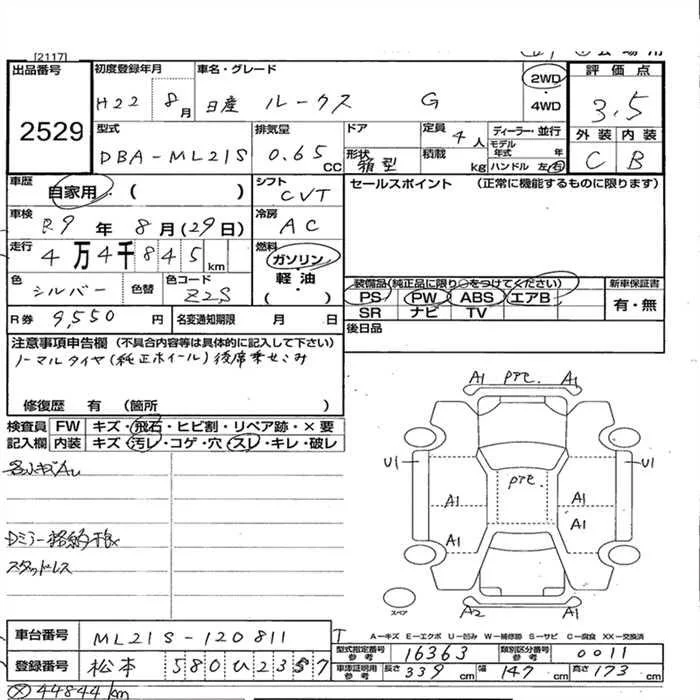 [2117]
出品番号
2529
初度登録年月
H22 8月
車名・グレード
日産 ルークス G
2WD
・
4WD
評価点
3.5
外装 内装
C B
型式
DBA-ML21S
排気量
0.65 cc
ドア
形状
箱型
定員
4人
積載
kg
ディーラー・並行
モデル年式 年
ハンドル 左 右
車歴
自家用 ( )
シフト
CVT
セールスポイント (正常に機能するものに限ります)
車検
R9年 8月(29日)
冷房
AC
走行
4万4千845km
燃料
ガソリン
軽・油
( )
色
シルバー
色替
色コード
Z2S
装備品(純正品に限り○をつけてください)
PS PW ABS エアB
SR ナビ TV
新車保証書
有・無
R券 9,550円
名変通知期限 月 日
後日品
注意事項申告欄 (不具合内容等は具体的に記入して下さい)
ノーマルタイヤ(純正ホイール)後席乗せこみ
修復歴 有 (箇所 )
検査員 FW キズ・飛石・ヒビ割・リペア跡・×要
記入欄 内装 キズ・汚レ・コゲ・穴・スレ・キレ・破レ
Dミラー格納不良
スタッドレス
A1 PTC. A1
U1 U1
PTC.
A1 A1
A1 A1
スペア
A2 A1
A-キズ E-エクボ U-凹み W-補修跡 S-サビ C-腐食 XX-交換済
車台番号 ML21S-120811
型式指定番号 参考 16363
類別区分番号 参考 0011
登録番号 松本 580 ひ 2357
車庫証明用 参考 長さ 339cm 幅 147cm 高さ 173cm
44844km